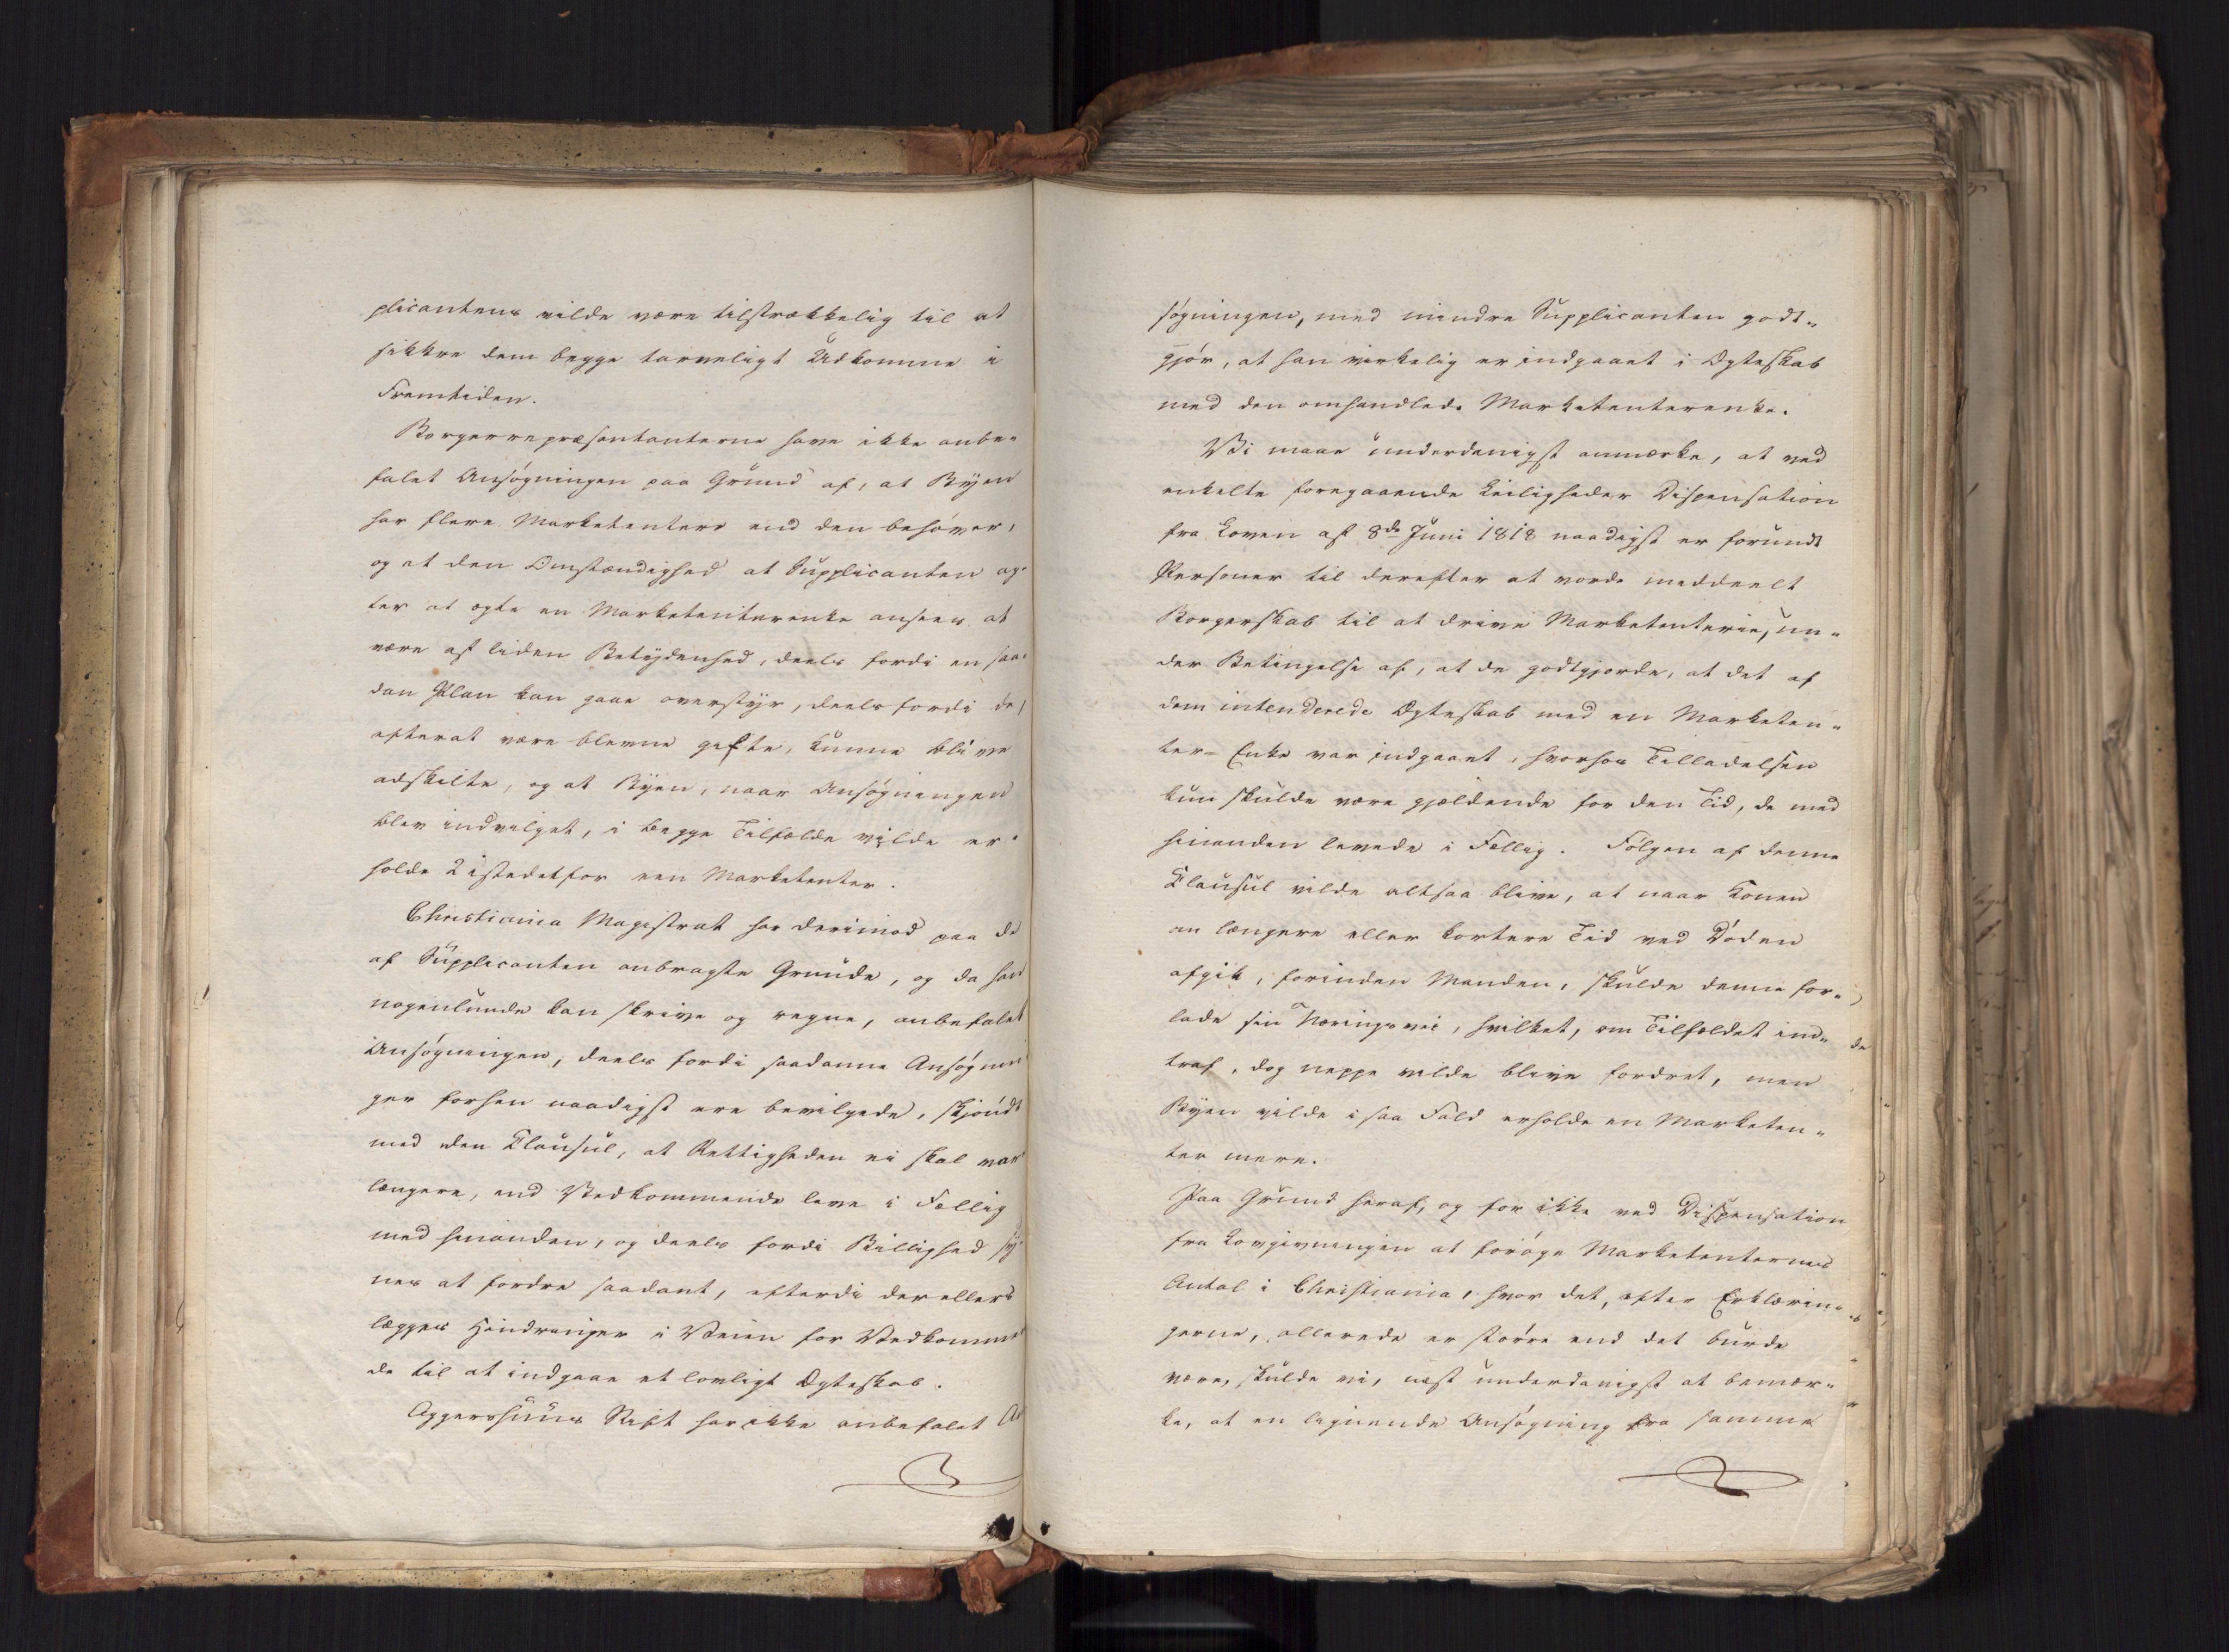 plicantens vilde være tilstrækkelig til at
sikkre dem begge tarveligt Udkomme i
Fremtiden.
Borgerrepræsentanterne have ikke anbe-
falet Ansøgningen paa Grund af, at Byen
har flere Marketentere end den behøver,
og at den Omstændighed at Supplicanten ag-
ter at ægte en Marketenterenke ansees at
være af liden Betydenhed, deels fordi en saa-
dan Plan kan gaae overstyr, deels fordi de,
efterat være blevne gifte, kunne blive
adskilte, og at Byen, naar Ansøgningen
blev indvilget, i begge Tilfælde vilde er-
holde 2 istedetfor een Marketenter.
Christiania Magistrat har derimod paa de
af Supplicanten anbragte Grunde, og da han
nogenlunde kan skrive og regne, anbefalet
Ansøgningen, deels fordi saadanne Ansøgnin
ger forhen naadigst ere bevilgede, skjøndt
med den Clausul, at Rettigheden ei skal vare
længere, end Vedkommende leve i Fællig
med hinanden, og deels fordi Billighed sy-
nes at fordre saadant, efterdi der ellers
lægges Hindringer i Veien for Vedkommen
de til at indgaae et lovligt Ægteskab.
Aggershuus Stift har ikke anbefalet An
søgningen, med mindre Supplicanten godt-
gjør, at han virkelig er indgaaet i Ægteskab
med den omhandlede Marketenterenke.
Vi maae underdanigst anmærke, at ved
enkelte foregaaende Leiligheder Dispensation
fra Loven af 8de Juni 1818 naadigst er forundt
Personer til derefter at vorde meddeelt
Borgerskab til at drive Marketenterie, un-
der Betingelse af, at de godtgjorde, at det af
dem intenderede Ægteskab med en Marketen-
ter-Enke var indgaaet, hvorhos Tilladelsen
kun skulde være gjældende for den Tid, de med
hinanden levede i Fællig. Følgen af denne
Clausul vilde altsaa blive, at naar Konen
en længere eller kortere Tid ved Døden
afgik, forinden Manden, skulde denne for-
lade sin Næringsvei, hvilket, om Tilfældet ind-
traf, dog neppe vilde blive fordret, men
Byen vilde i saa Fald erholde en Marketen-
ter mere.
Paa Grund heraf, og for ikke ved Dispensation
fra Lovgivningen at forøge Marketenternes
Antal i Christiania, hvor det, efter Erklærin-
gerne, allerede er større end det burde
være, skulde vi, næst underdanigst at bemær-
ke, at en lignende Ansøgning fra samme